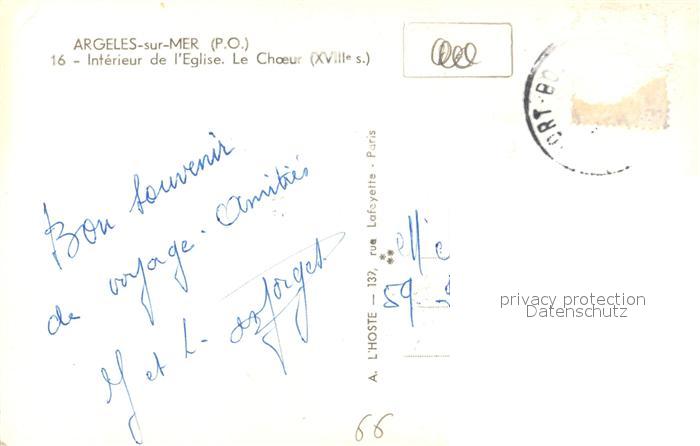 ARGELES-sur-MER (P.O.)
16 - Intérieur de l'Eglise. Le Chœur (XVIIIe s.)
ORT-BO
Bon souvenir
de voyage. Amitiés
et L.
A. L'HOSTE — 137, rue Lafayette - Paris
59
privacy protection
Datenschutz
66